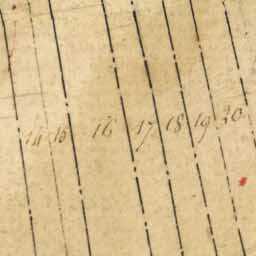 14 15 16 17 18 19 20